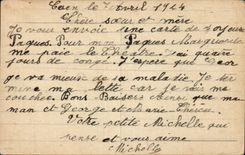 Caen le 7 Avril 1924
Chère sœur et mère
Je vous envoie une carte de Joyeuse
Pâques. Pour mon Pâques Marguerite
me paie le théâtre j'ai quatre
jours de congé. J'espère que Geor
ge va mieux de sa maladie. Je ter
mine ma lettre car je vais me
coucher. Bons Baisers chère que ma
man et George et
Votre petite Michelle qui
pense et vous aime
Michelle